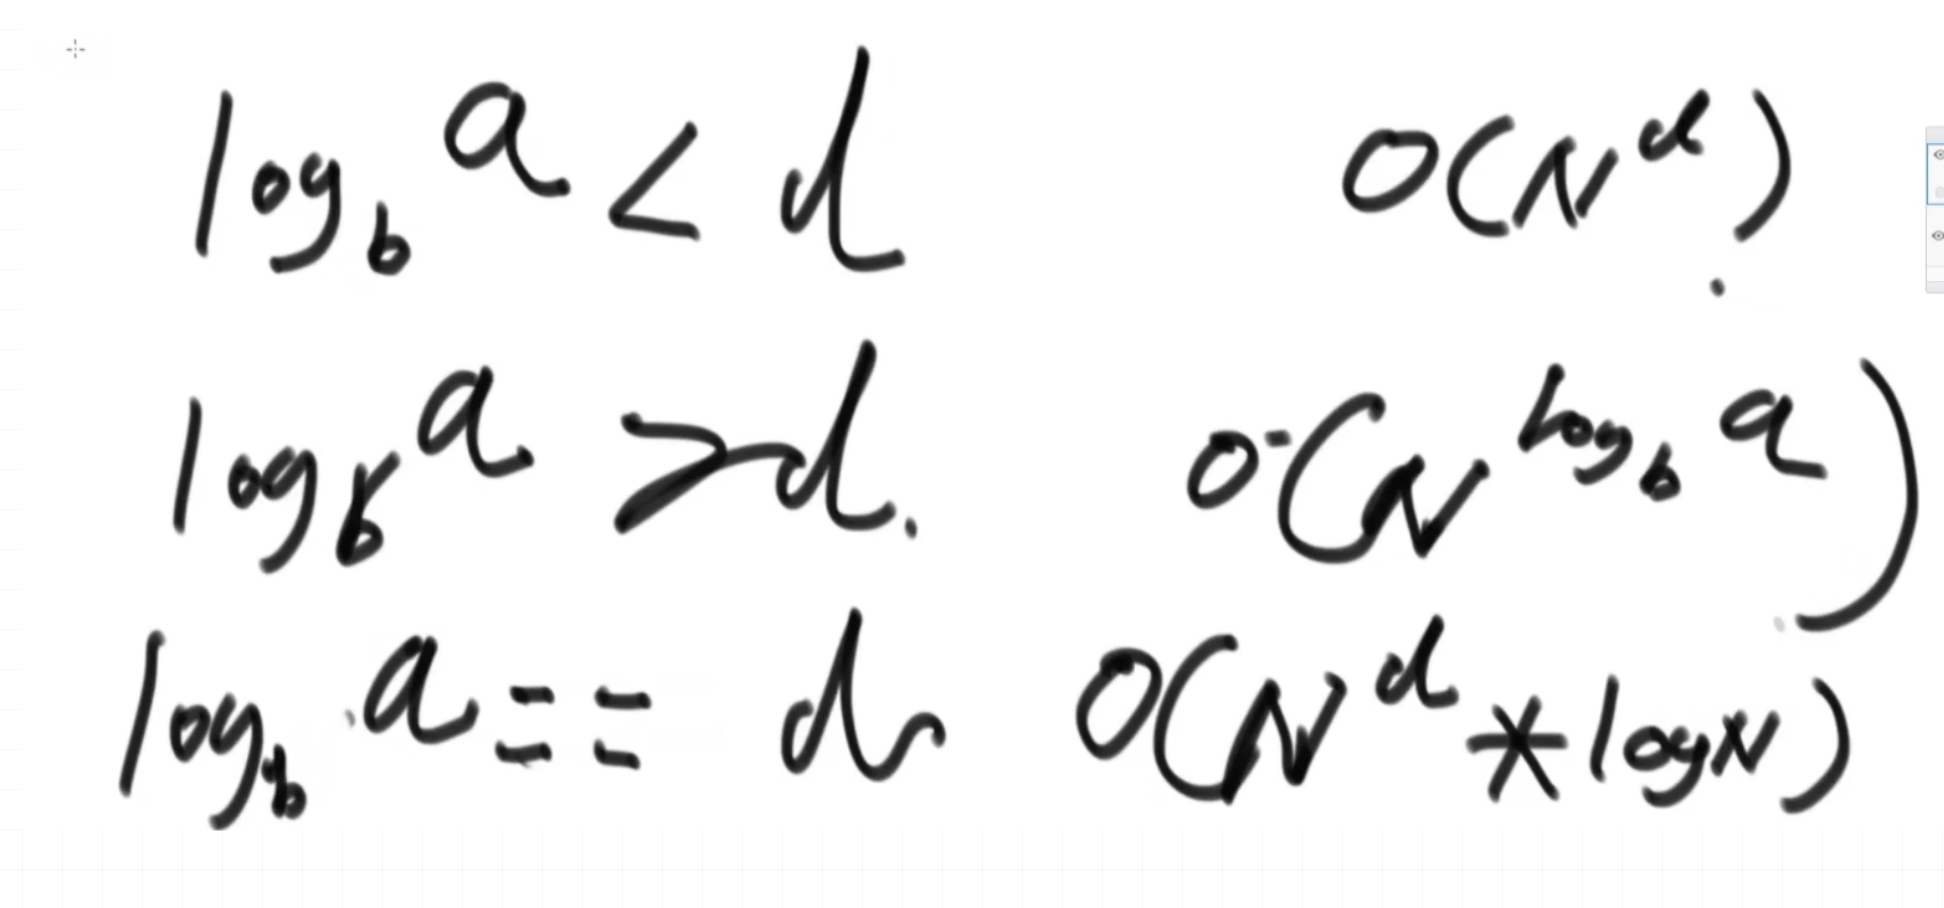 log_b a < d    O(N^d)
log_b a > d.    O(N^{log_b a})
log_b a == d    O(N^d * logN)